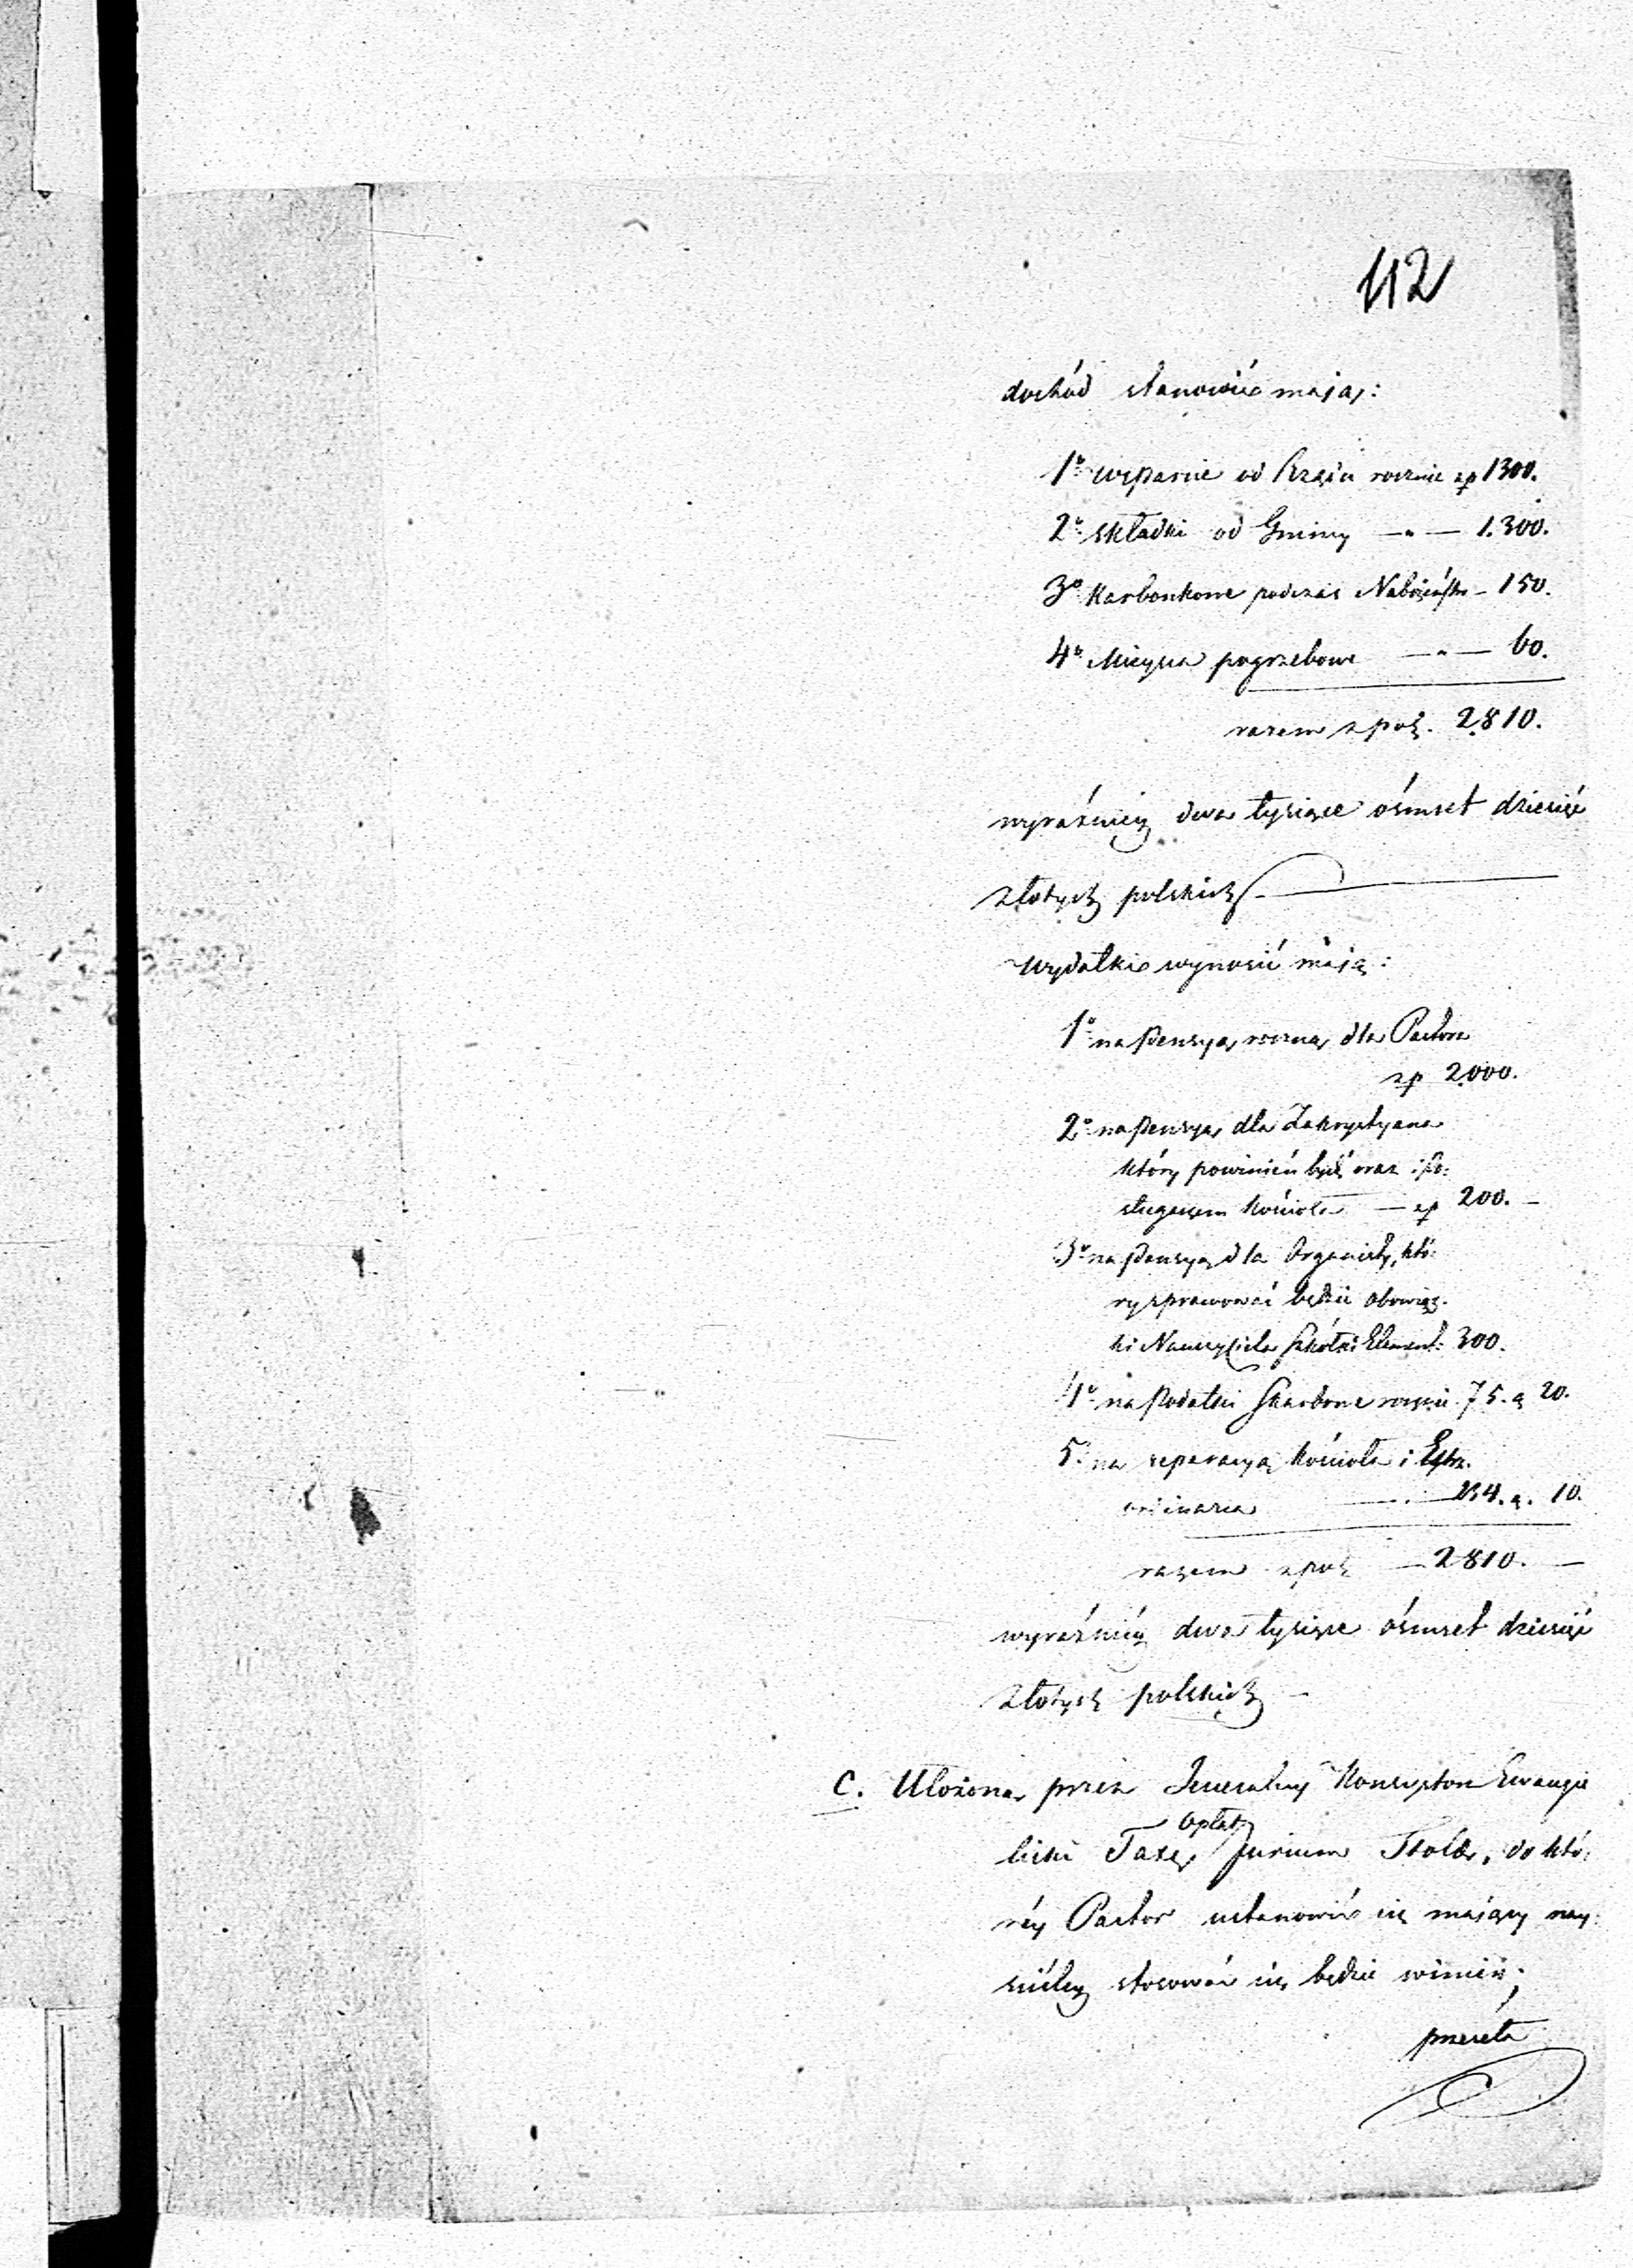 112
dochód stanowić mają:
1° wsparcie od Rządu rocznie zp 1300.
2° składki od Gminy —„— 1.300.
3° Karbonkowe podczas Nabożeństw — 150.
4° Mieysca pogrzebowe —„— 60.
razem zpol. 2,810.
wyraźniey dwa tysiące ośmset dziesięć
złotych polskich. —
Wydatki wynosić mają:
1° na Pensyą roczną dla Pastora
zp 2,000.
2° na Pensyą dla Zakrystyana
który powinien być oraz i Po:
sługaczem Kościoła — zp 200. —
3° na Pensyą dla Organisty, któ:
ry sprawować będzie obowiąz:
ki Nauczyciela Szkółki Element: 300.
4° na Podatki Skarbowe rocznie 75. g 20.
5° na reparacyą Kościoła i Extra.
ordinaria —.— 234. g. 10.
razem zpol. — 2810. —
wyraźniey dwa tysiące ośmset dziesięć
złotych polskich —
C. Ułożoną przez Jeneralny Konsystorz Ewangie
licki Taxę opłat Jurium Stolæ, do któ:
réy Pastor ustanowić się maiący nay:
ściśley stosować się będzie winien;
przesyła